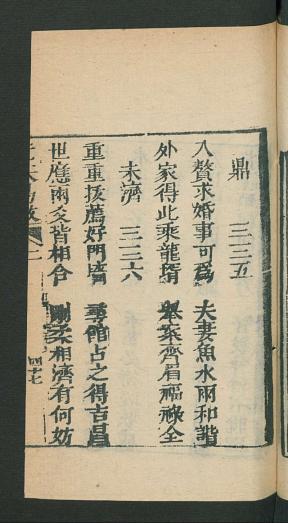 鼎　三三五
入贅求婚事可為　夫妻魚水兩和諧
外家得此乘龍壻　舉案齊眉福祿全
未濟　三三六
重重拔薦好門墻　尋館占之得吉昌
世應兩爻皆相合　剛柔相濟有何妨
四十七